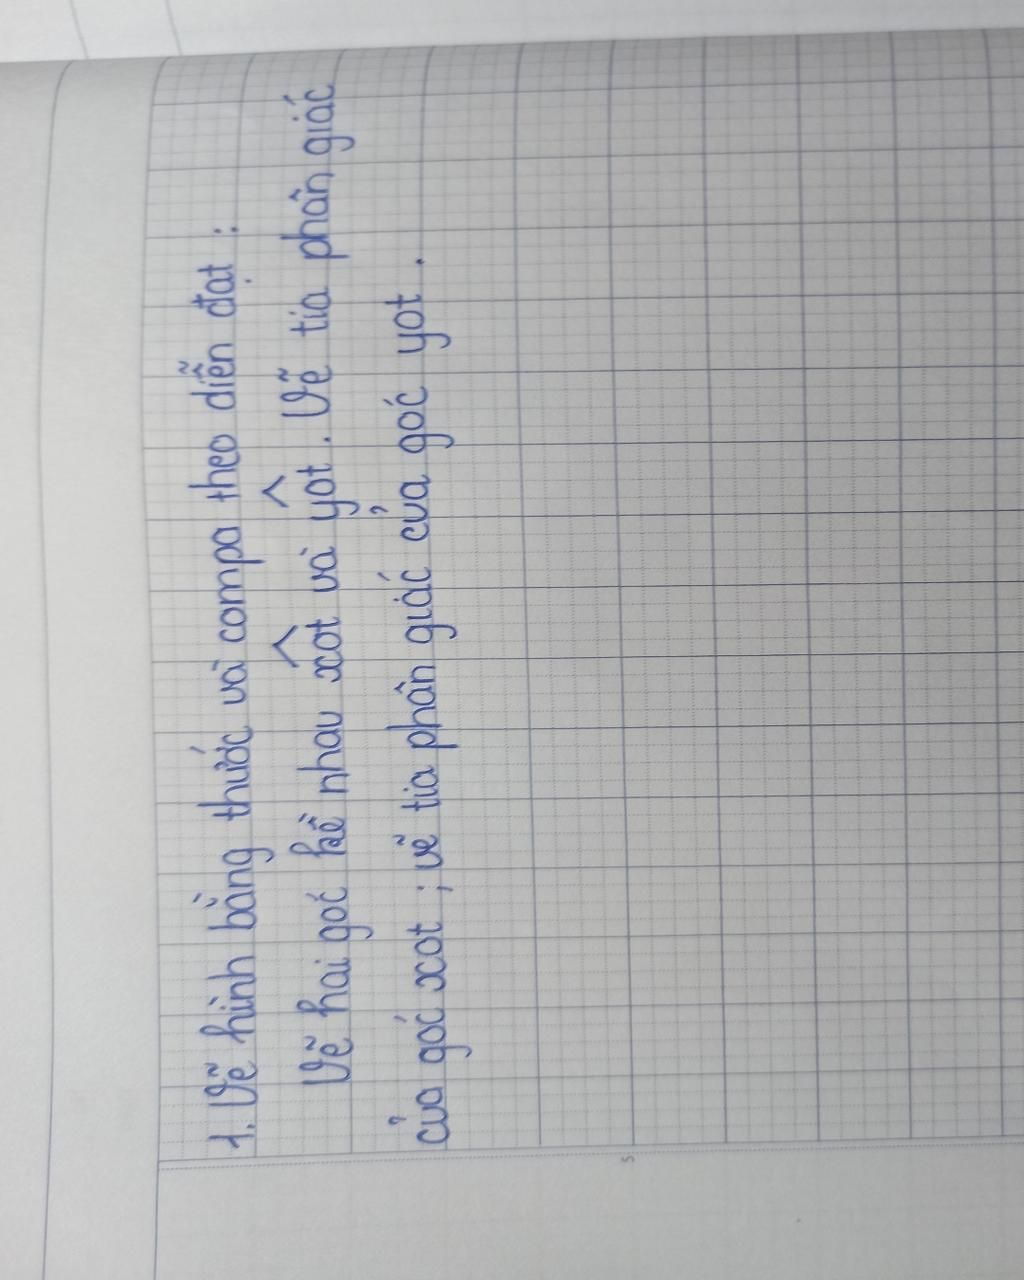 1. Vẽ hình bằng thước và compa theo diễn đạt :
Vẽ hai góc kề nhau xot và yot. Vẽ tia phân giác
của góc xot ; vẽ tia phân giác của góc yot .
5